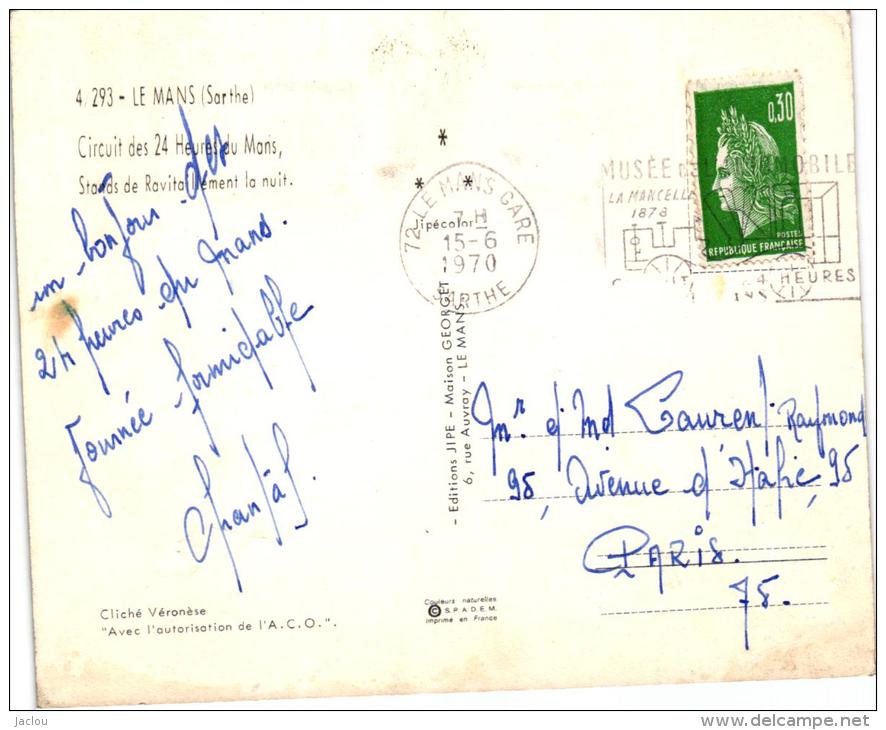 4/293 - LE MANS (Sarthe)
Circuit des 24 Heures du Mans,
Stands de Ravitaillement la nuit.
un bonjour des
24 heures du Mans.
Journée formidable
Chantal.
Cliché Véronèse
"Avec l'autorisation de l'A.C.O.".
Jipécolor
- Editions JIPE - Maison GEORGET -
6, rue Auvray - LE MANS
Couleurs naturelles
© S.P.A.D.E.M.
Imprimé en France
72 LE MANS GARE
7-H
15-6
1970
SARTHE
MUSÉE DE L'AUTOMOBILE
LA MANCELLE
1878
24 HEURES
0,30
POSTES
REPUBLIQUE FRANÇAISE
Mr. et Md Laurent Raymond
95, Avenue d'Italie, 95
PARIS.
75.
jaclou
www.delcampe.net